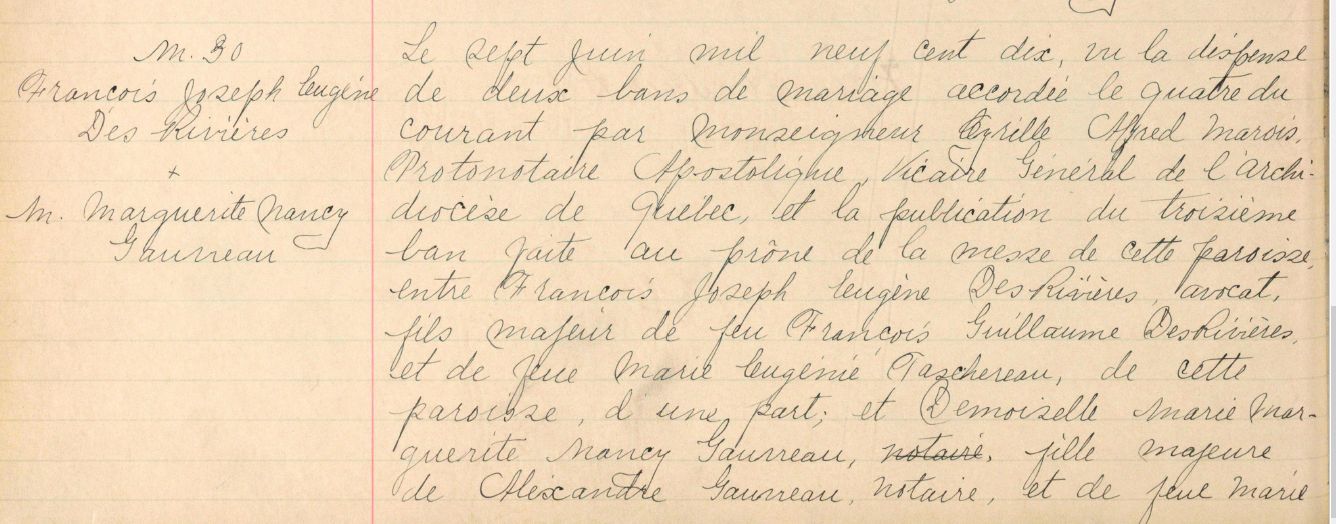 M. 30
François Joseph Eugène
Des Rivières
+
M. Marguerite Nancy
Gauvreau
Le sept Juin mil neuf cent dix, vu la dispense
de deux bans de mariage accordée le quatre du
courant par Monseigneur Cyrille Alfred Marois,
Protonotaire Apostolique, Vicaire Général de l'Archi-
diocèse de Québec, et la publication du troisième
ban faite au prône de la messe de cette paroisse,
entre François Joseph Eugène DesRivières, avocat,
fils majeur de feu François Guillaume DesRivières,
et de feue Marie Eugénie Taschereau, de cette
paroisse, d'une part; et Demoiselle Marie Mar-
guerite Nancy Gauvreau, notaire, fille majeure
de Alexandre Gauvreau, notaire, et de feue Marie